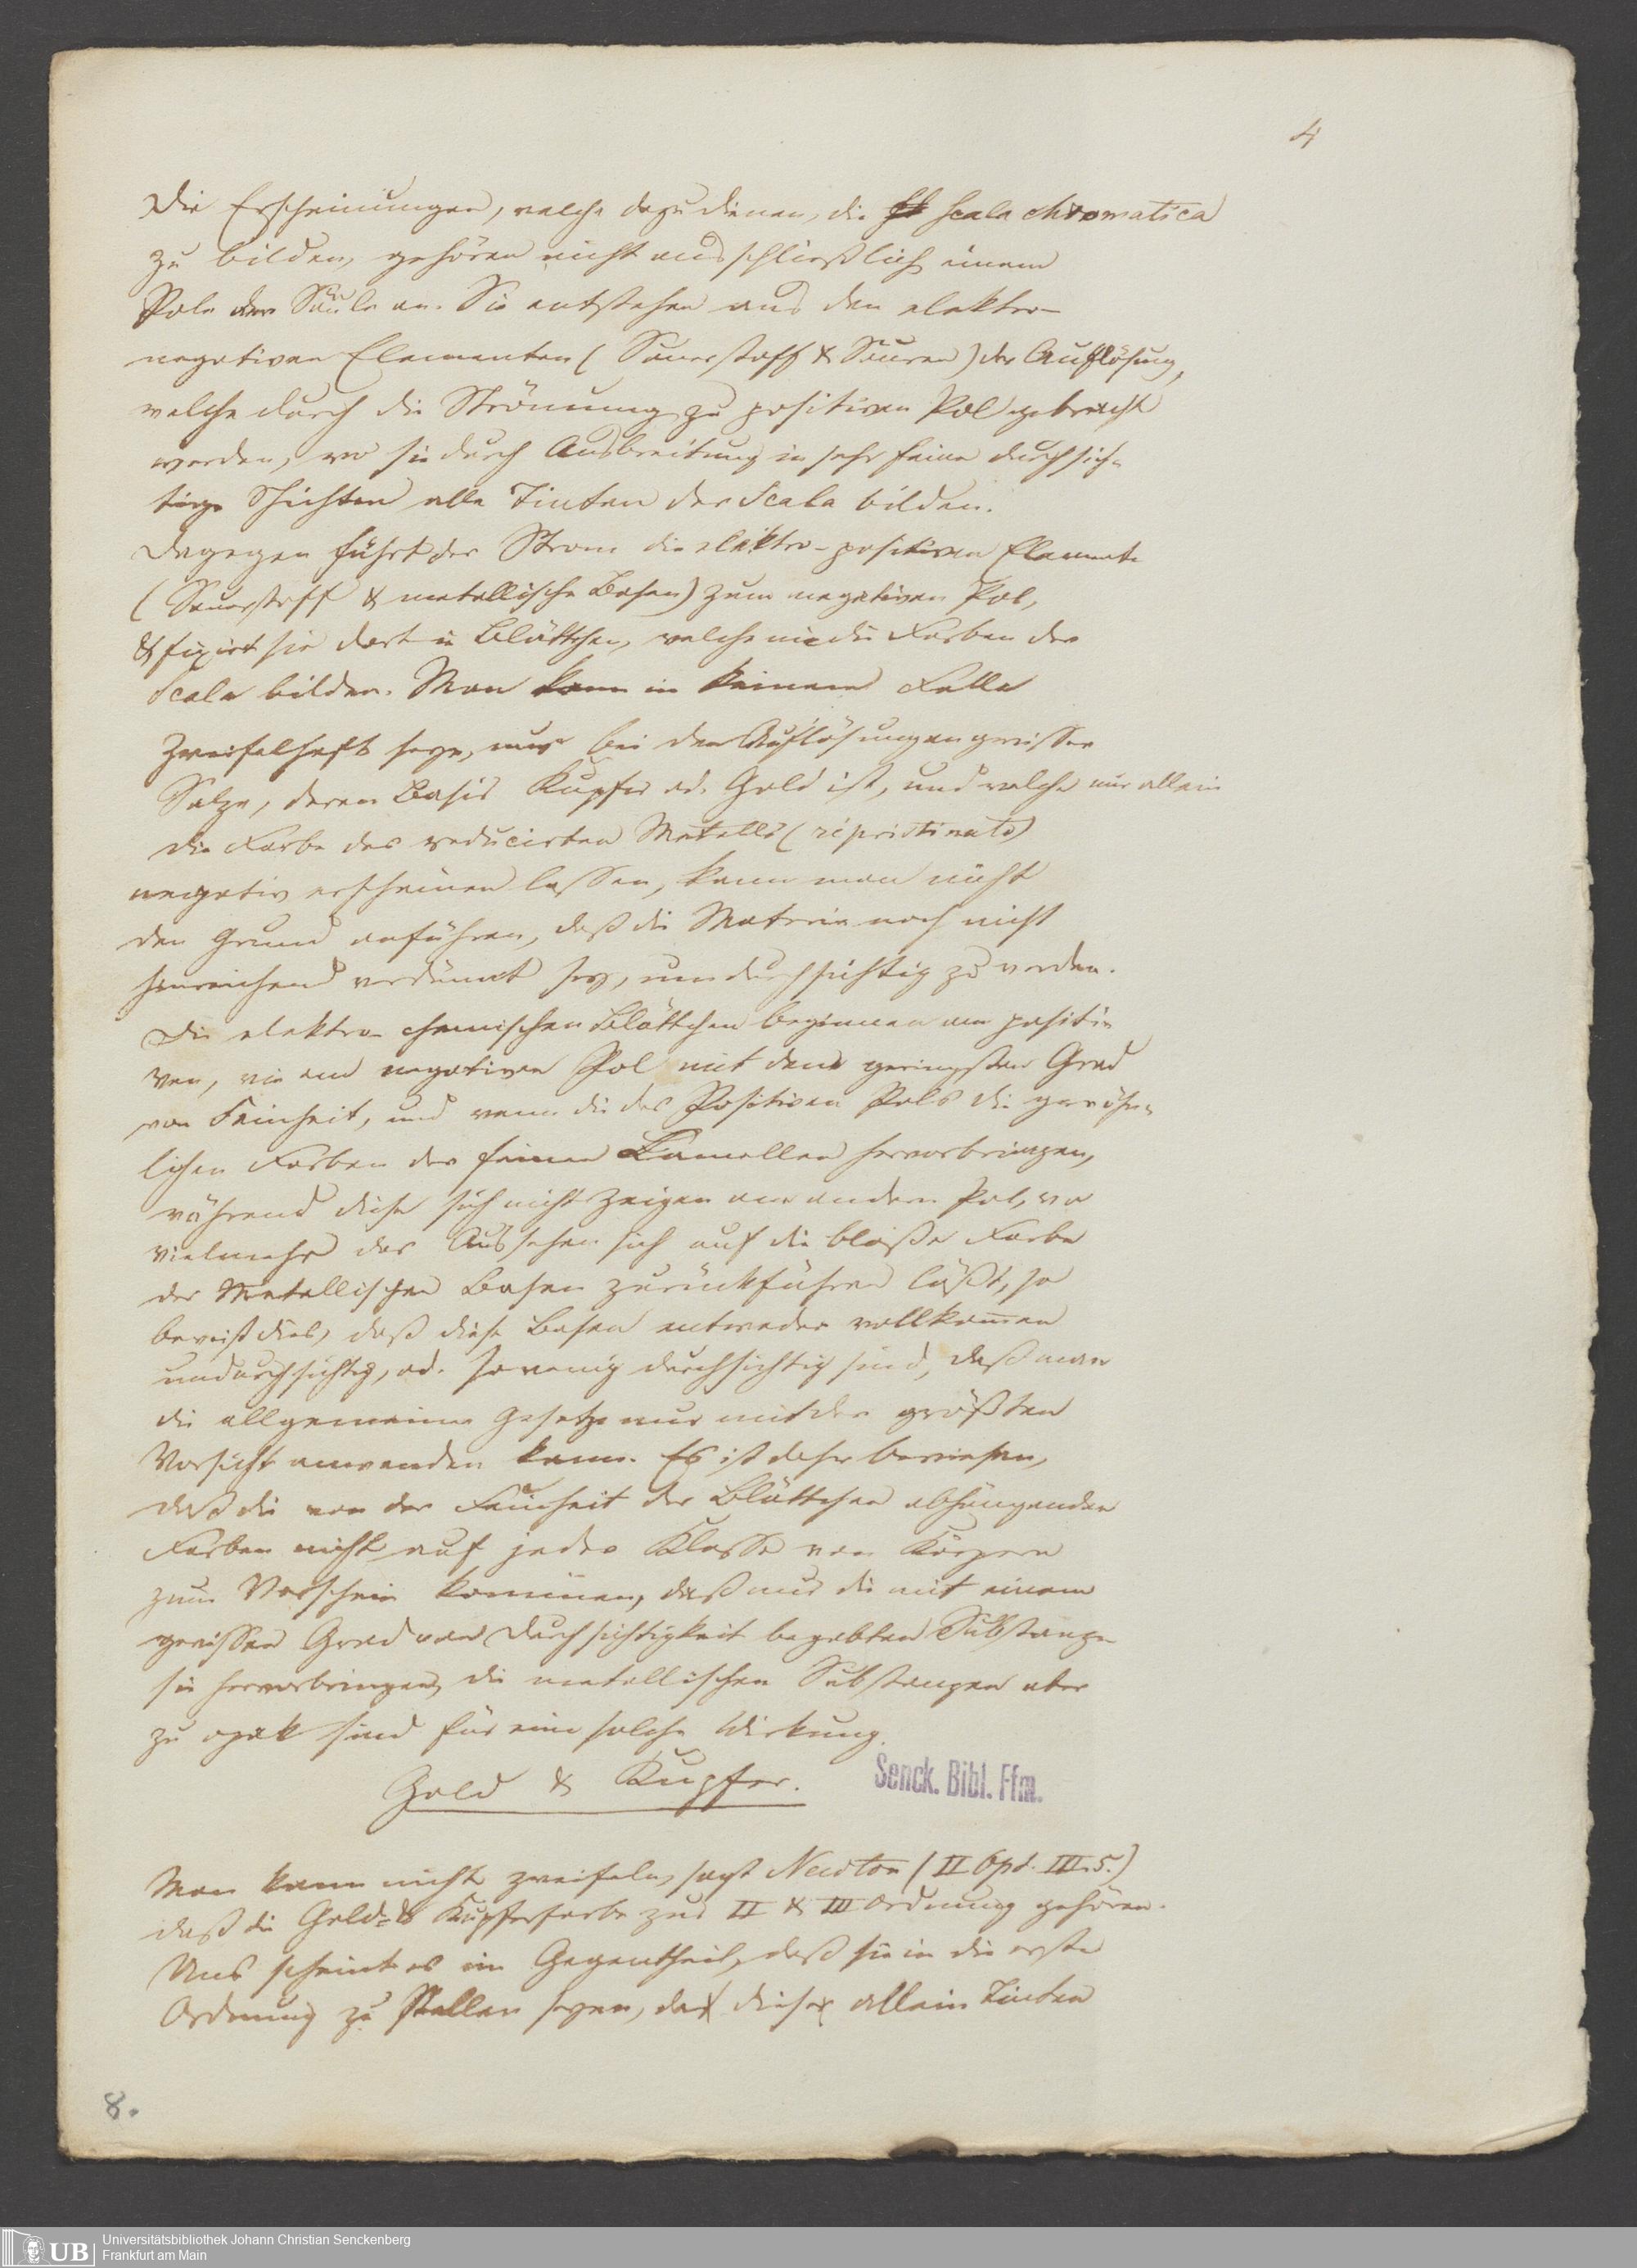 4
Die Erscheinungen, welche dazu dienen, die Scala chromatica
zu bilden, gehören nicht ausschließlich einem
Pole der Säule an. Sie entstehen aus den elektro-
negativen Elementen (Sauerstoff & Säuren) der Auflösung,
welche durch die Strömung zu positiven Pol gebracht
werden, wo sie durch Ausbreitung in sehr feine durchsich-
tige Schichten alle Tinten der Scala bilden.
Dagegen führt der Strom die elektro-positiven Elemente
(Sauerstoff & metallische Basen) zum negativen Pol,
& fixirt sie dort in Blättchen, welche nie die Farben der
Scala bilden. Man kann in keinem Falle
zweifelhaft seyn, nur bei den Auflösungen gewisser
Salze, deren Basis Kupfer od. Gold ist, und welche nur allein
die Farbe des reducirten Metalls (ripristinato)
negativ erscheinen lassen, kann man nicht
den Grund anführen, daß die Materie noch nicht
hinreichend verdünnt sey, um durchsichtig zu werden.
Die elektro-chemischen Blättchen beginnen am positi-
ven, wie am negativen Pol mit dem geringsten Grad
von Feinheit, und wenn die des Positiven Pols die gewöhn-
lichen Farben der feinen Lamellen hervorbringen,
während diese sich nicht zeigen am andern Pol, wo
vielmehr das Aussehen sich auf die bloße Farbe
der Metallischen Basen zurückführen läßt, so
beweist dies, daß diese Basen entweder vollkommen
undurchsichtig, od. so wenig durchsichtig sind, daß man
die allgemeinen Gesetze nur mit der größten
Vorsicht anwenden kann. Es ist daher bewiesen,
daß die von der Feinheit der Blättchen abhängenden
Farben nicht auf jeder Klasse von Körpern
zum Vorschein kommen, daß nur die mit einem
gewissen Grad von Durchsichtigkeit begabten Substanzen
sie hervorbringen, die metallischen Substanzen aber
zu opak sind für eine solche Wirkung.
Gold & Kupfer.
Senck. Bibl. Ffm.
Man kann nicht zweifeln, sagt Newton (II Opt. III. 5.)
daß die Gold- & Kupferfarbe zur II & III Ordnung gehören.
Uns scheint es im Gegentheil, daß sie in die erste
Ordnung zu stellen seyen, da diese allein Tinten
8.
Universitätsbibliothek Johann Christian Senckenberg
Frankfurt am Main
UB